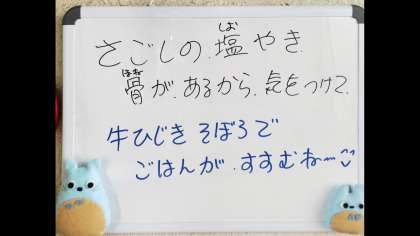 さごしの塩やき
骨があるから、気をつけて
牛ひじきそぼろで
ごはんがすすむね〜
しお
ほね